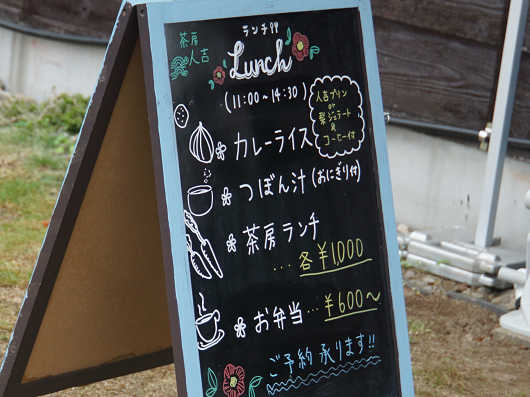 茶房
人吉
ランチタイム
Lunch
(11:00〜14:30)
人吉プリン
or
梨ジェラート
&
コーヒー付
カレーライス
つぼん汁(おにぎり付)
茶房ランチ
...各¥1,000
お弁当...¥600〜
ご予約承ります!!